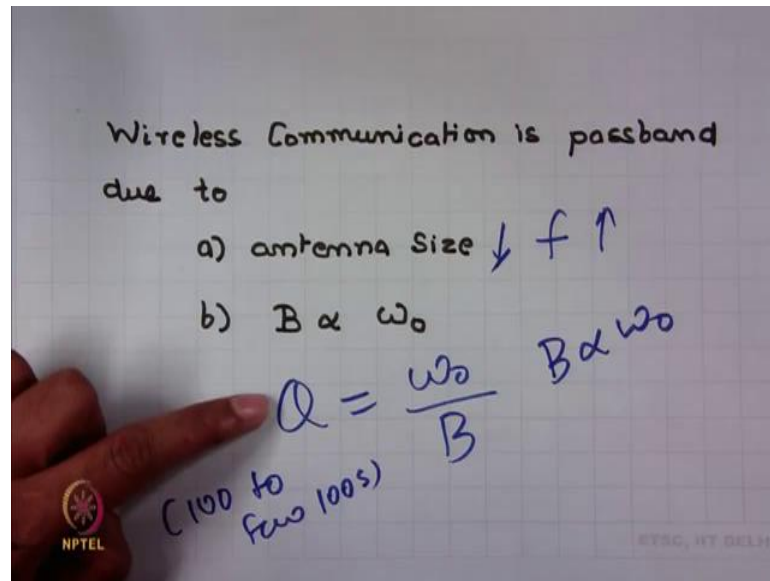 Wireless Communication is passband
due to
a) antenna Size ↓ f ↑
b) B ∝ ω₀
Q = ω₀ / B B ∝ ω₀
(100 to
few 100s)
NPTEL
ETSC, IIT DELH